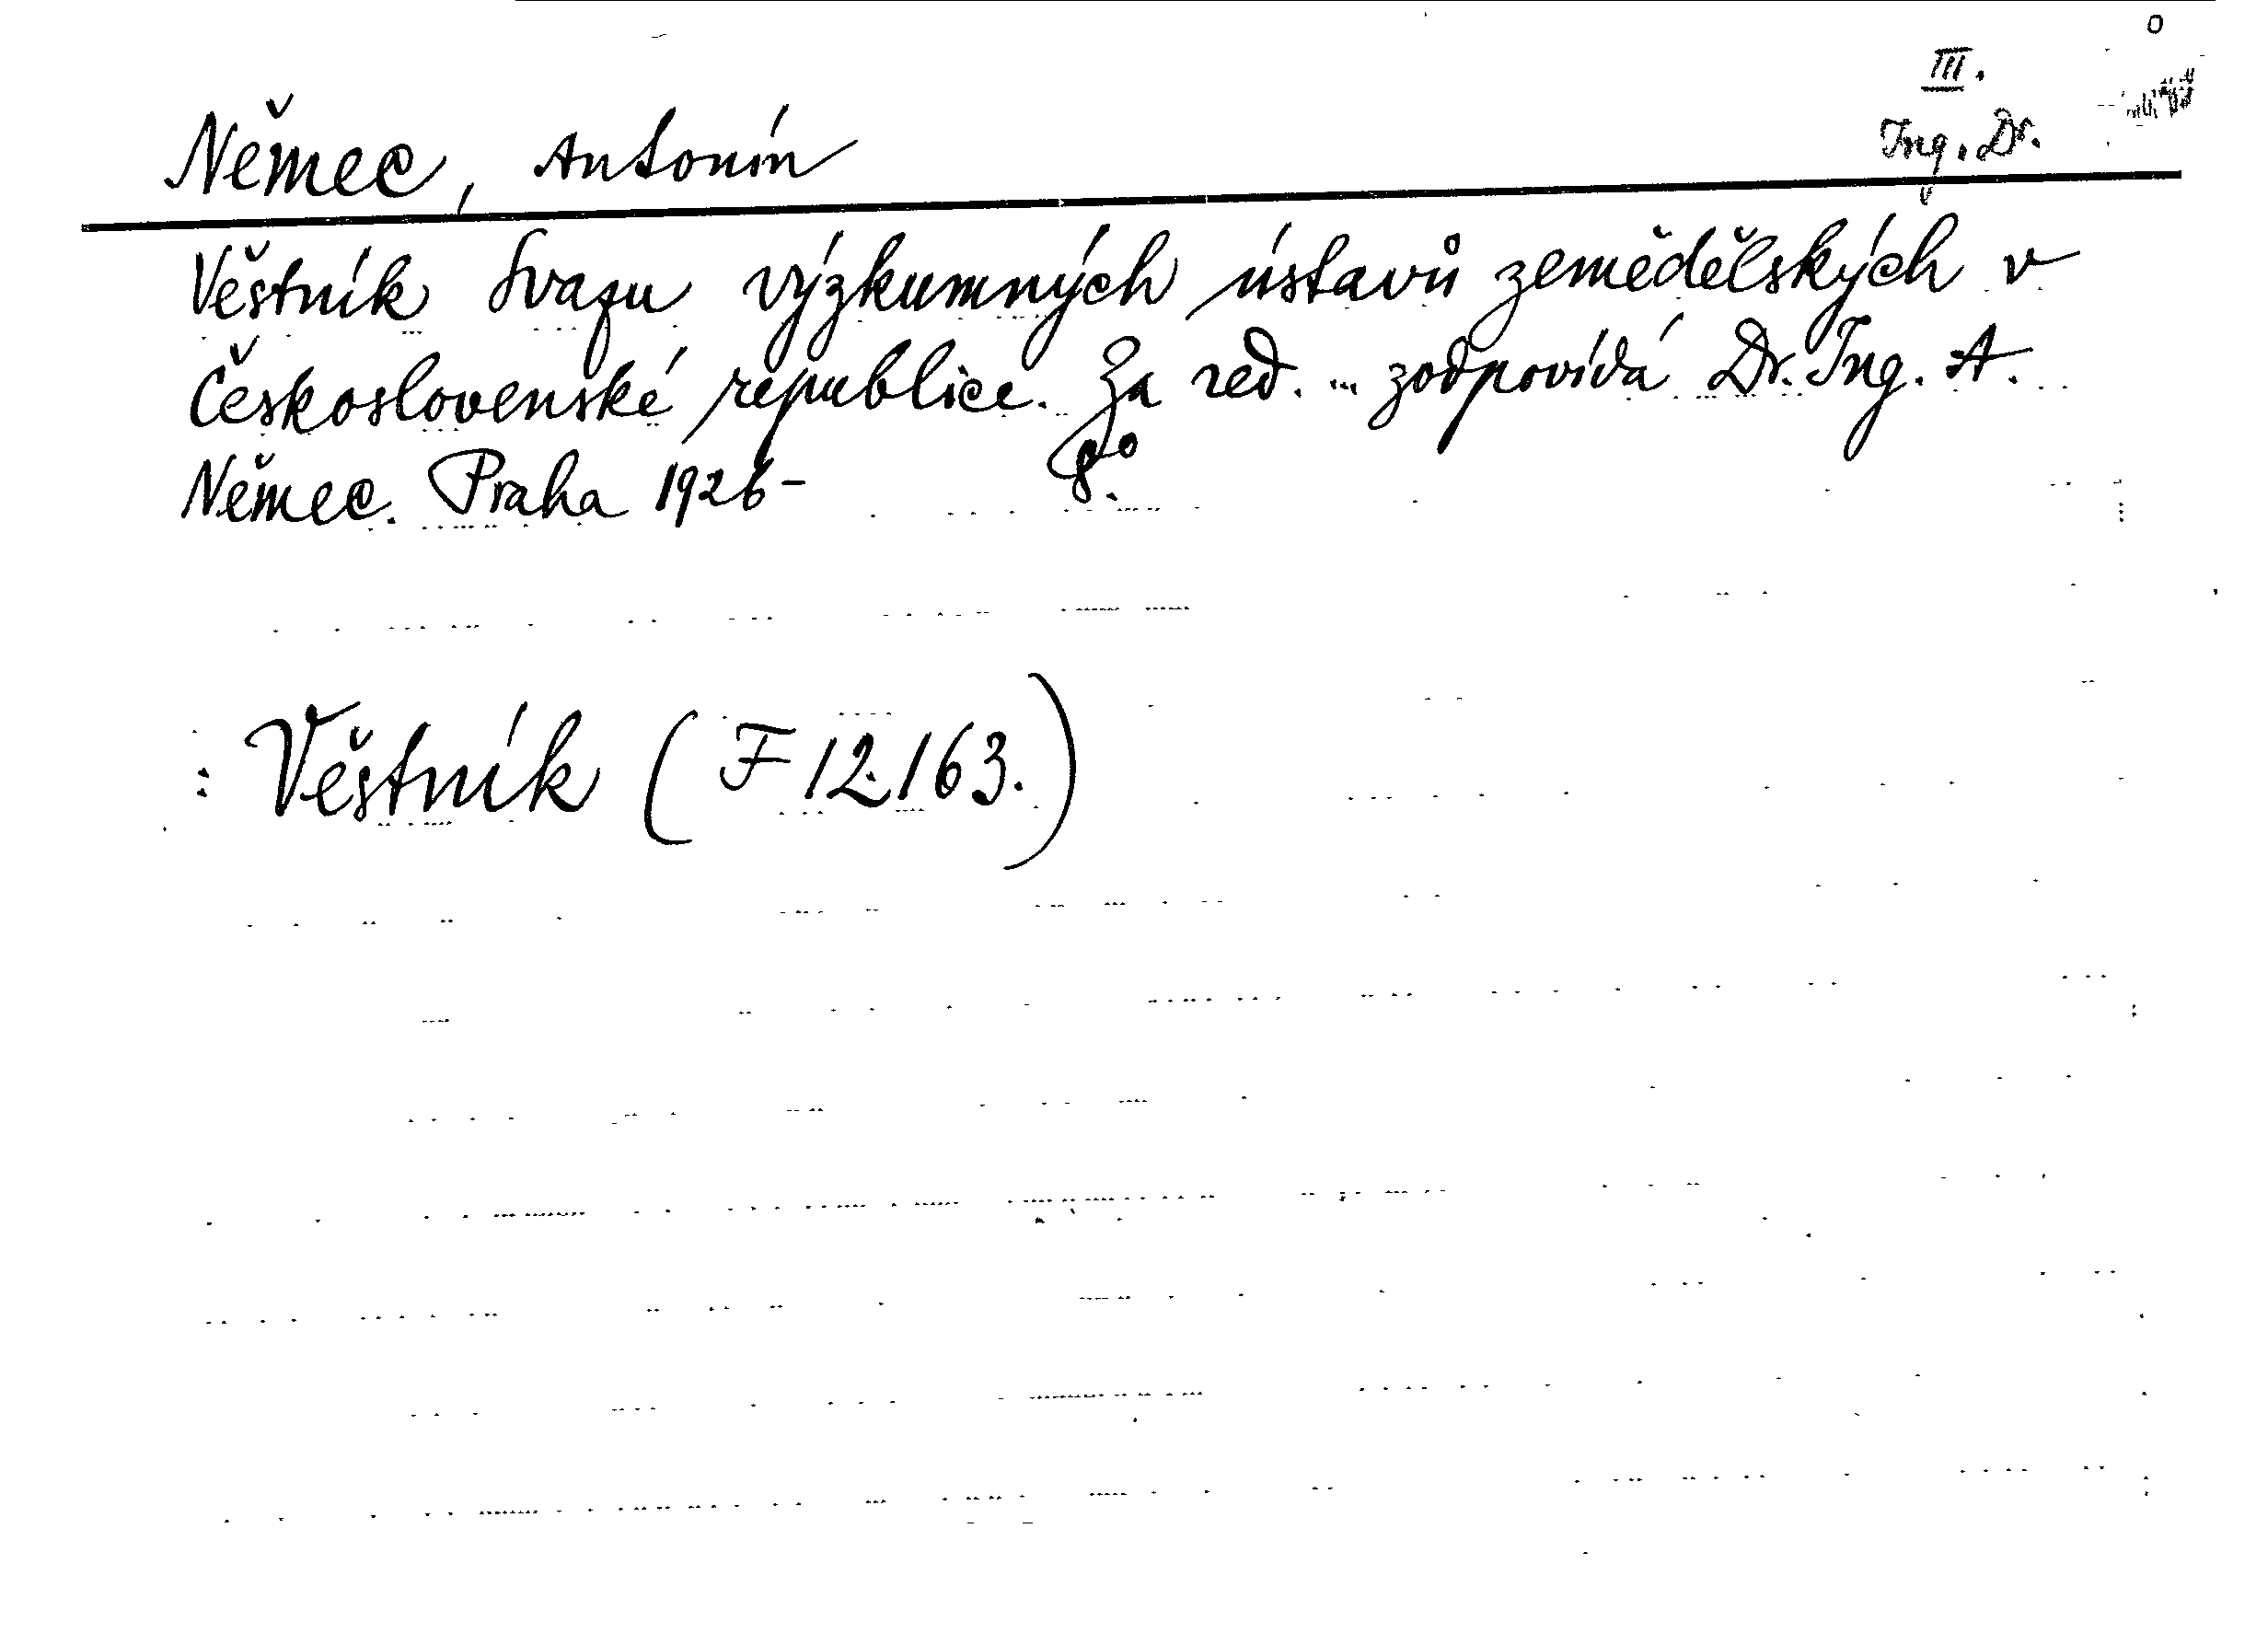 III.
Němec, Antonín Ing. Dr.
Věstník Svazu výzkumných ústavů zemědělských v
Československé republice. Za red. ... zodpovídá Dr. Ing. A.
Němec. Praha 1926- 8°.
: Věstník (F 12.163.)